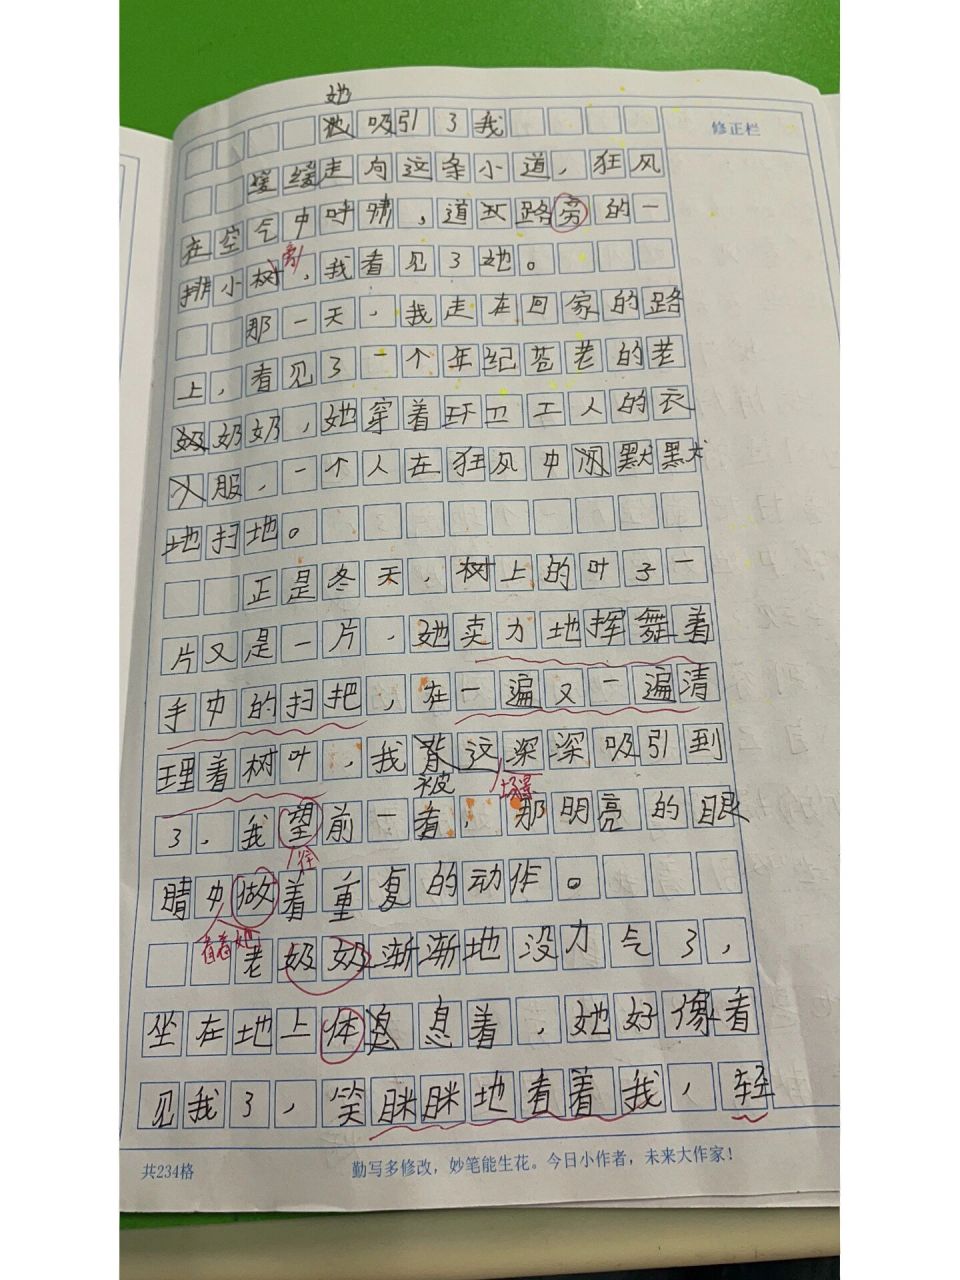 她
吸引了我
修正栏
缓缓走向这条小道，狂风
在空气中呼啸，道路旁的一
旁
排小树，我看见了她。
那一天，我走在回家的路
上，看见了一个年纪苍老的老
奶奶，她穿着环卫工人的衣
服，一个人在狂风中默默
地扫地。
正是冬天，树上的叶子一
片又是一片，她卖力地挥舞着
手中的扫把，在一遍又一遍清
理着树叶，我这深深吸引到
被
场景
了，我望前一看，那明亮的眼
往
睛中做着重复的动作。
看着她
老奶奶渐渐地没力气了，
坐在地上体息着，她好像看
见我了，笑眯眯地看着我，轻
共234格
勤写多修改，妙笔能生花。今日小作者，未来大作家！